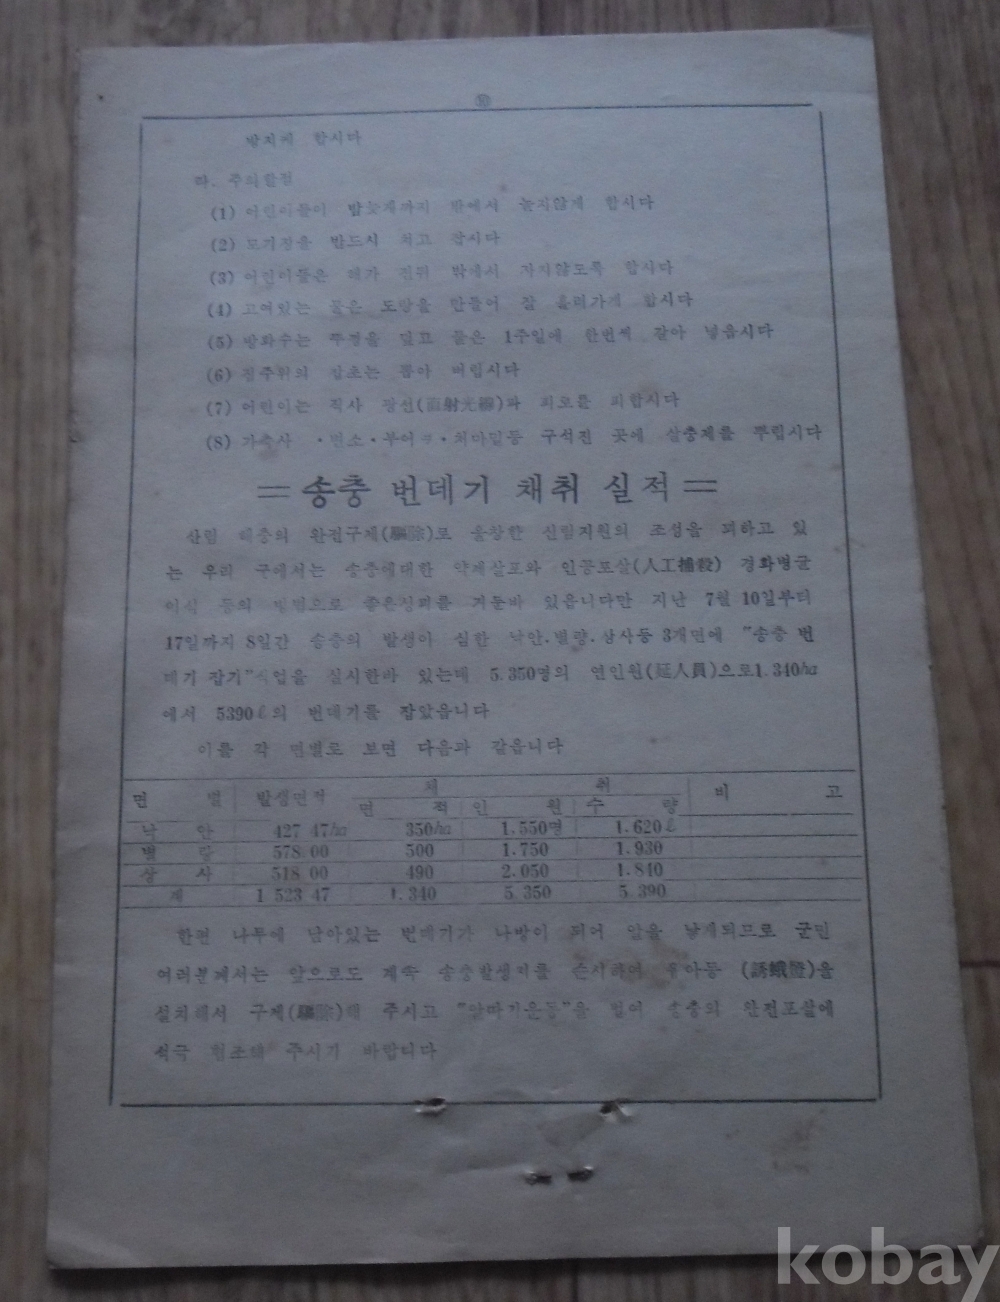 방지케 합시다
라. 주의할점
(1) 어린이들이 밤늦게까지 밖에서 놀지않게 합시다
(2) 모기장을 반드시 치고 잡시다
(3) 어린이들은 해가 진뒤 밖에서 자지않도록 합시다
(4) 고여있는 물은 도랑을 만들어 잘 흘러가게 합시다
(5) 방화수는 뚜껑을 덮고 물은 1주일에 한번씩 갈아 넣읍시다
(6) 집주위의 잡초는 뽑아 버립시다
(7) 어린이는 직사 광선(直射光線)과 피로를 피합시다
(8) 가축사 ·변소·부엌·처마밑등 구석진 곳에 살충제를 뿌립시다
=송충 번데기 채취 실적=
산림 해충의 완전구제(驅除)로 울창한 산림자원의 조성을 꾀하고 있
는 우리 군에서는 송충에대한 약제살포와 인공포살(人工捕殺) 경화병균
이식 등의 방법으로 좋은성과를 거둔바 있읍니다만 지난 7월 10일부터
17일까지 8일간 송충의 발생이 심한 낙안·별량·상사등 3개면에 "송충 번
데기 잡기"작업을 실시한바 있는데 5.350명의 연인원(延人員)으로1.340ha
에서 5390ℓ의 번데기를 잡았읍니다
이를 각 면별로 보면 다음과 같읍니다
면 별 발생면적 채 취 비 고
면 적 인 원 수 량
낙 안 427 47ha 350ha 1.550명 1.620ℓ
별 량 578 00 500 1.750 1.930
상 사 518 00 490 2.050 1.840
계 1 523 47 1.340 5 350 5 390
한편 나무에 남아있는 번데기가 나방이 되어 알을 낳게되므로 군민
여러분께서는 앞으로도 계속 송충발생지를 순시하여 유아등 (誘蛾燈)을
설치해서 구제(驅除)해 주시고 "알따기운동"을 벌여 송충의 완전포살에
적극 협조해 주시기 바랍니다
kobay